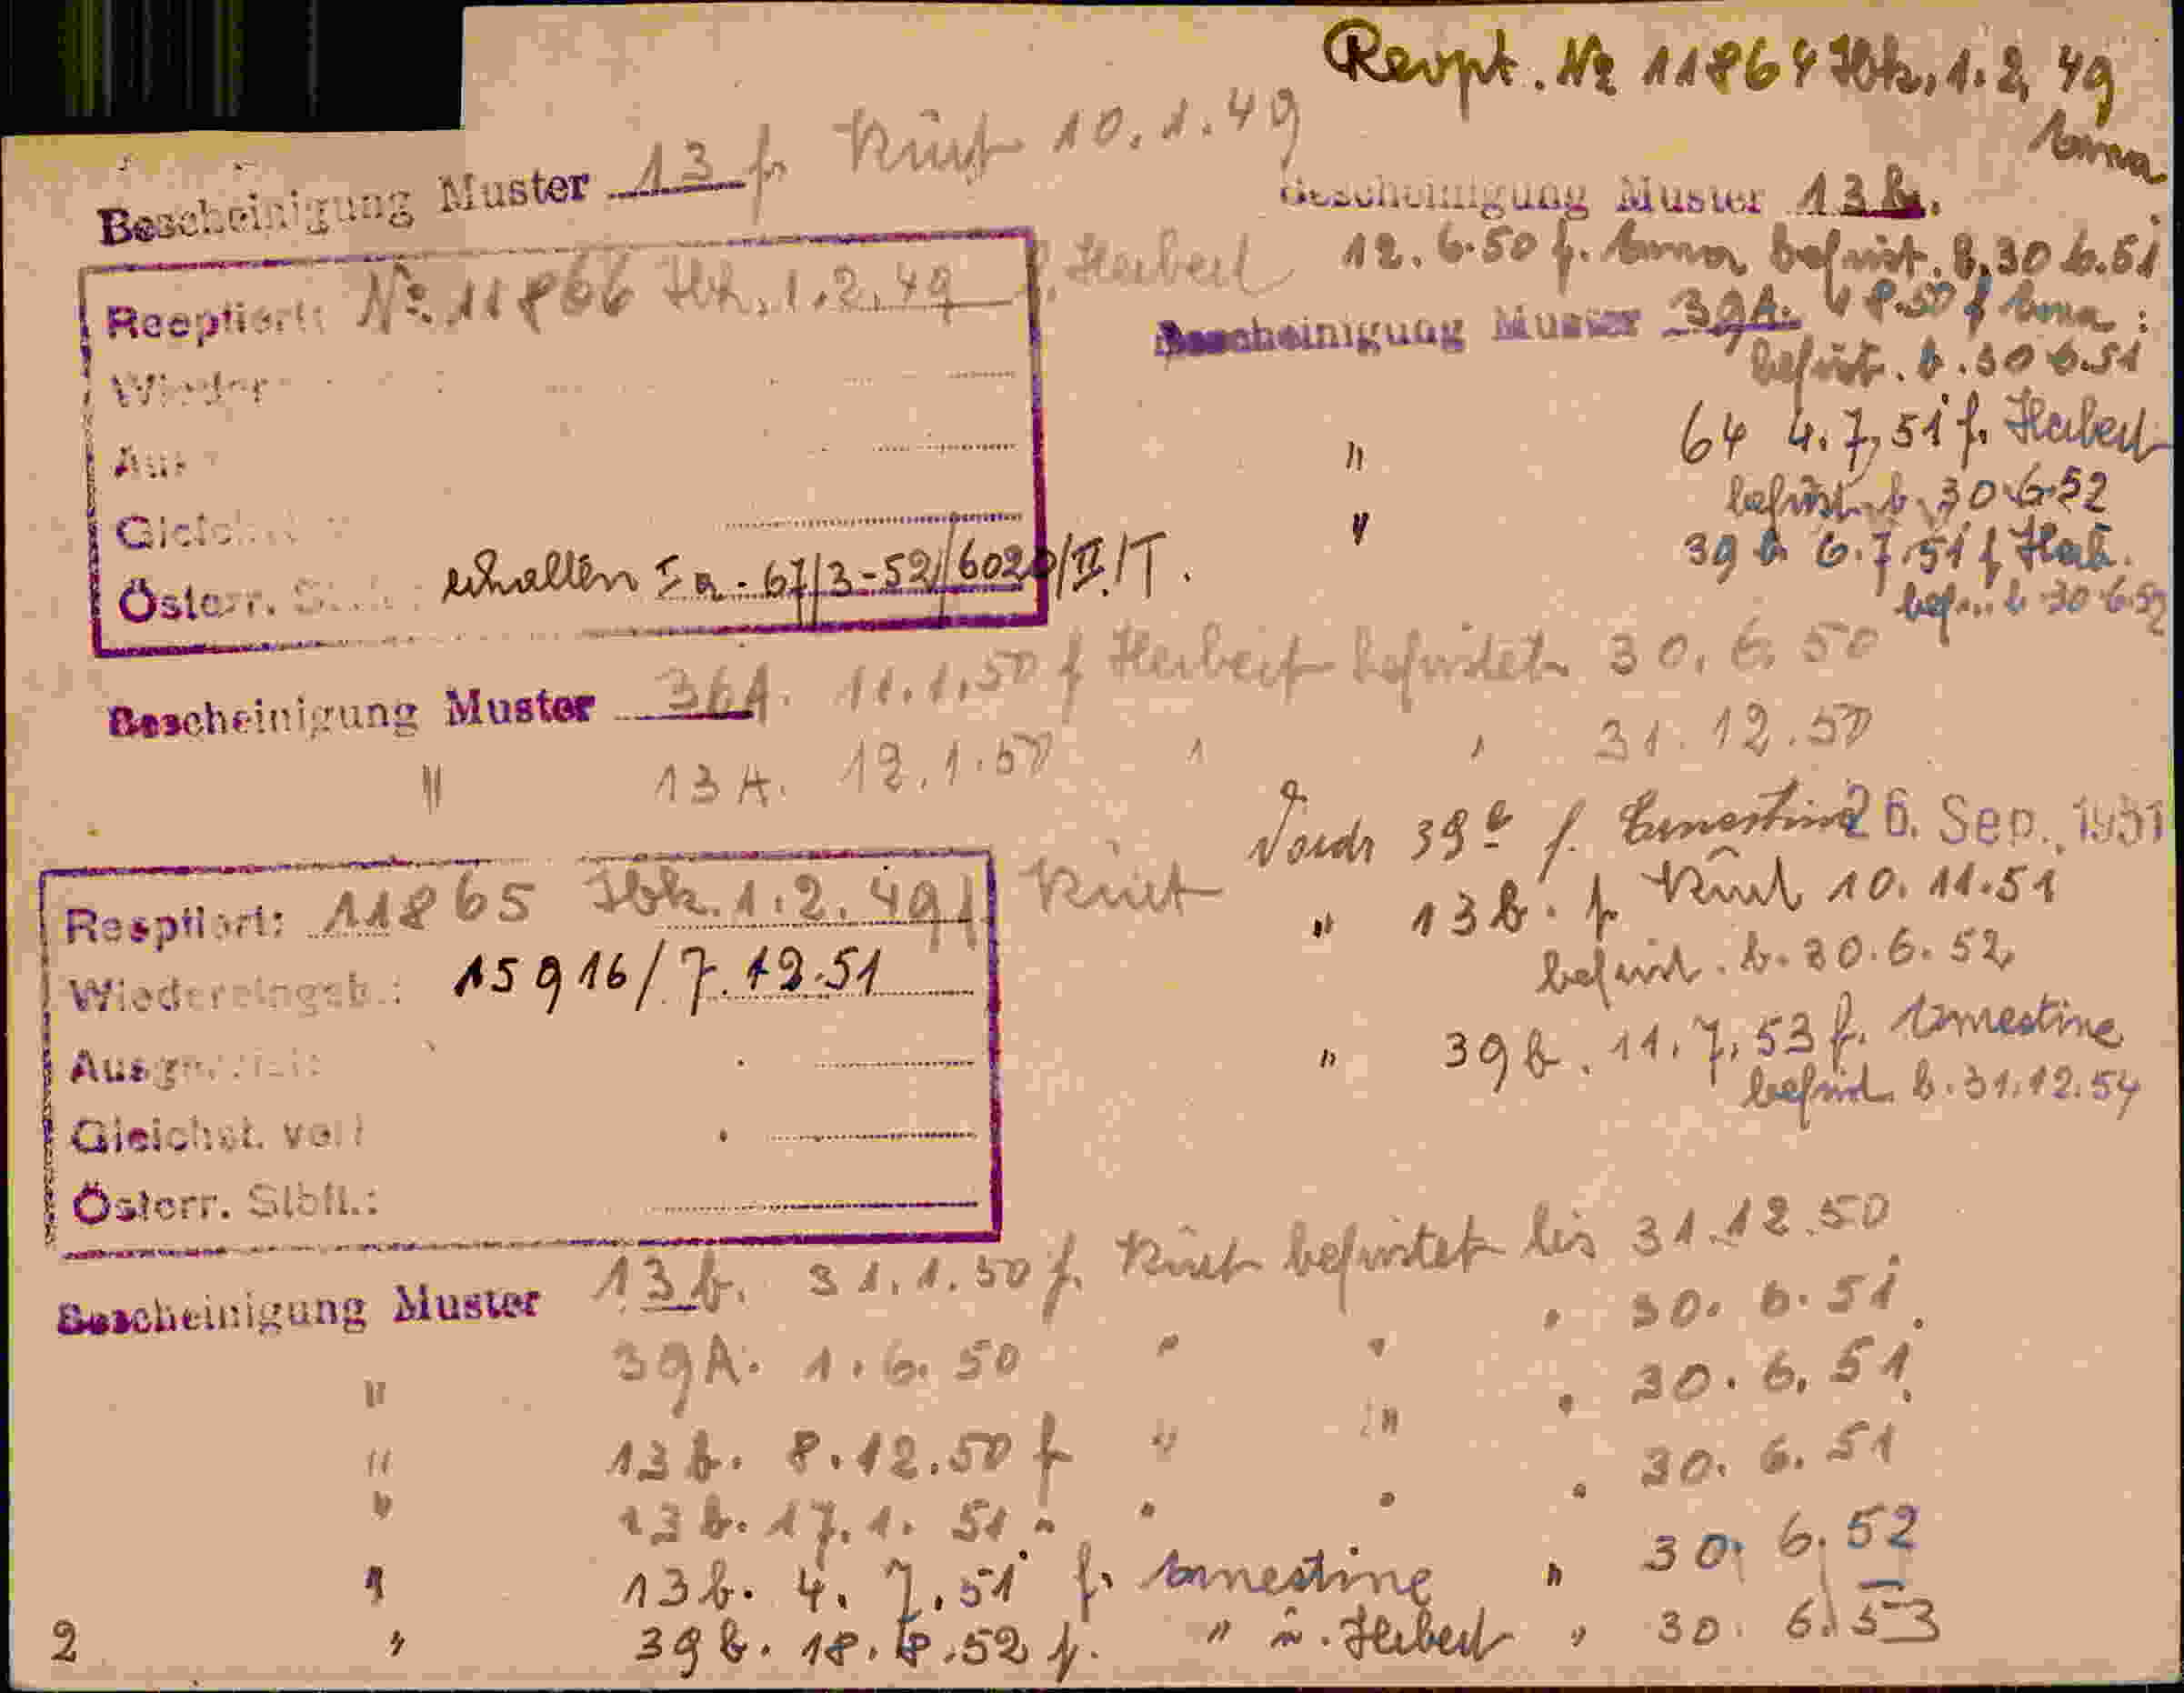 Revpt. № 11864 Ibk, 1.2, 49
Erna
Bescheinigung Muster 13 f. Kurt 10.1.49
Bescheinigung Muster 13 b.
12.6.50 f. Erna befrist. b. 30 6.51
Reeptiert: №. 11866 Ibk, 1.2.49 f. Herbert
Bescheinigung Muster 39A. 4 8.50 f Erna :
befrist. b. 30 6.51
Wieder
Aus
" 64 4.7,51 f. Herbert
befrist. b. 30.6.52
Gleich
" 39 b 6.7.51 f Herb.
bef... b. 30.6.52
Österr. erhalten Ia - 67/3-52//6020/II./T.
Bescheinigung Muster 36A. 11.1.50 f Herbert befristet 30.6.50
" 13 A. 12.1.50 " " 31.12.50
Vordr 39b f. Ernestine 26. Sep. 1951
Resptiert: 11865 Ibk. 1.2.49 f. Kurt
" 13 b. f. Kurt 10.11.51
befrist. b. 30.6.52
Wiedereingeb.: 15916/7.12.51
" 39 b. 11.7.53 f. Ernestine
befrist. b. 31.12.54
Ausg
Gleichst. voll
Österr. Stbft.:
Bescheinigung Muster 13 b. 31.1.50 f. Kurt befristet bis 31.12.50
" 39A. 1.6.50 " " " 30.6.51
" 13 b. 8.12.50 f " " " 30.6.51
" 13 b. 17.1.51 " " " " 30.6.51
" 13 b. 4.7.51 f. Ernestine " 30.6.52
2 " 39 b. 18.8.52 f. " u. Herbert " 30.6.53